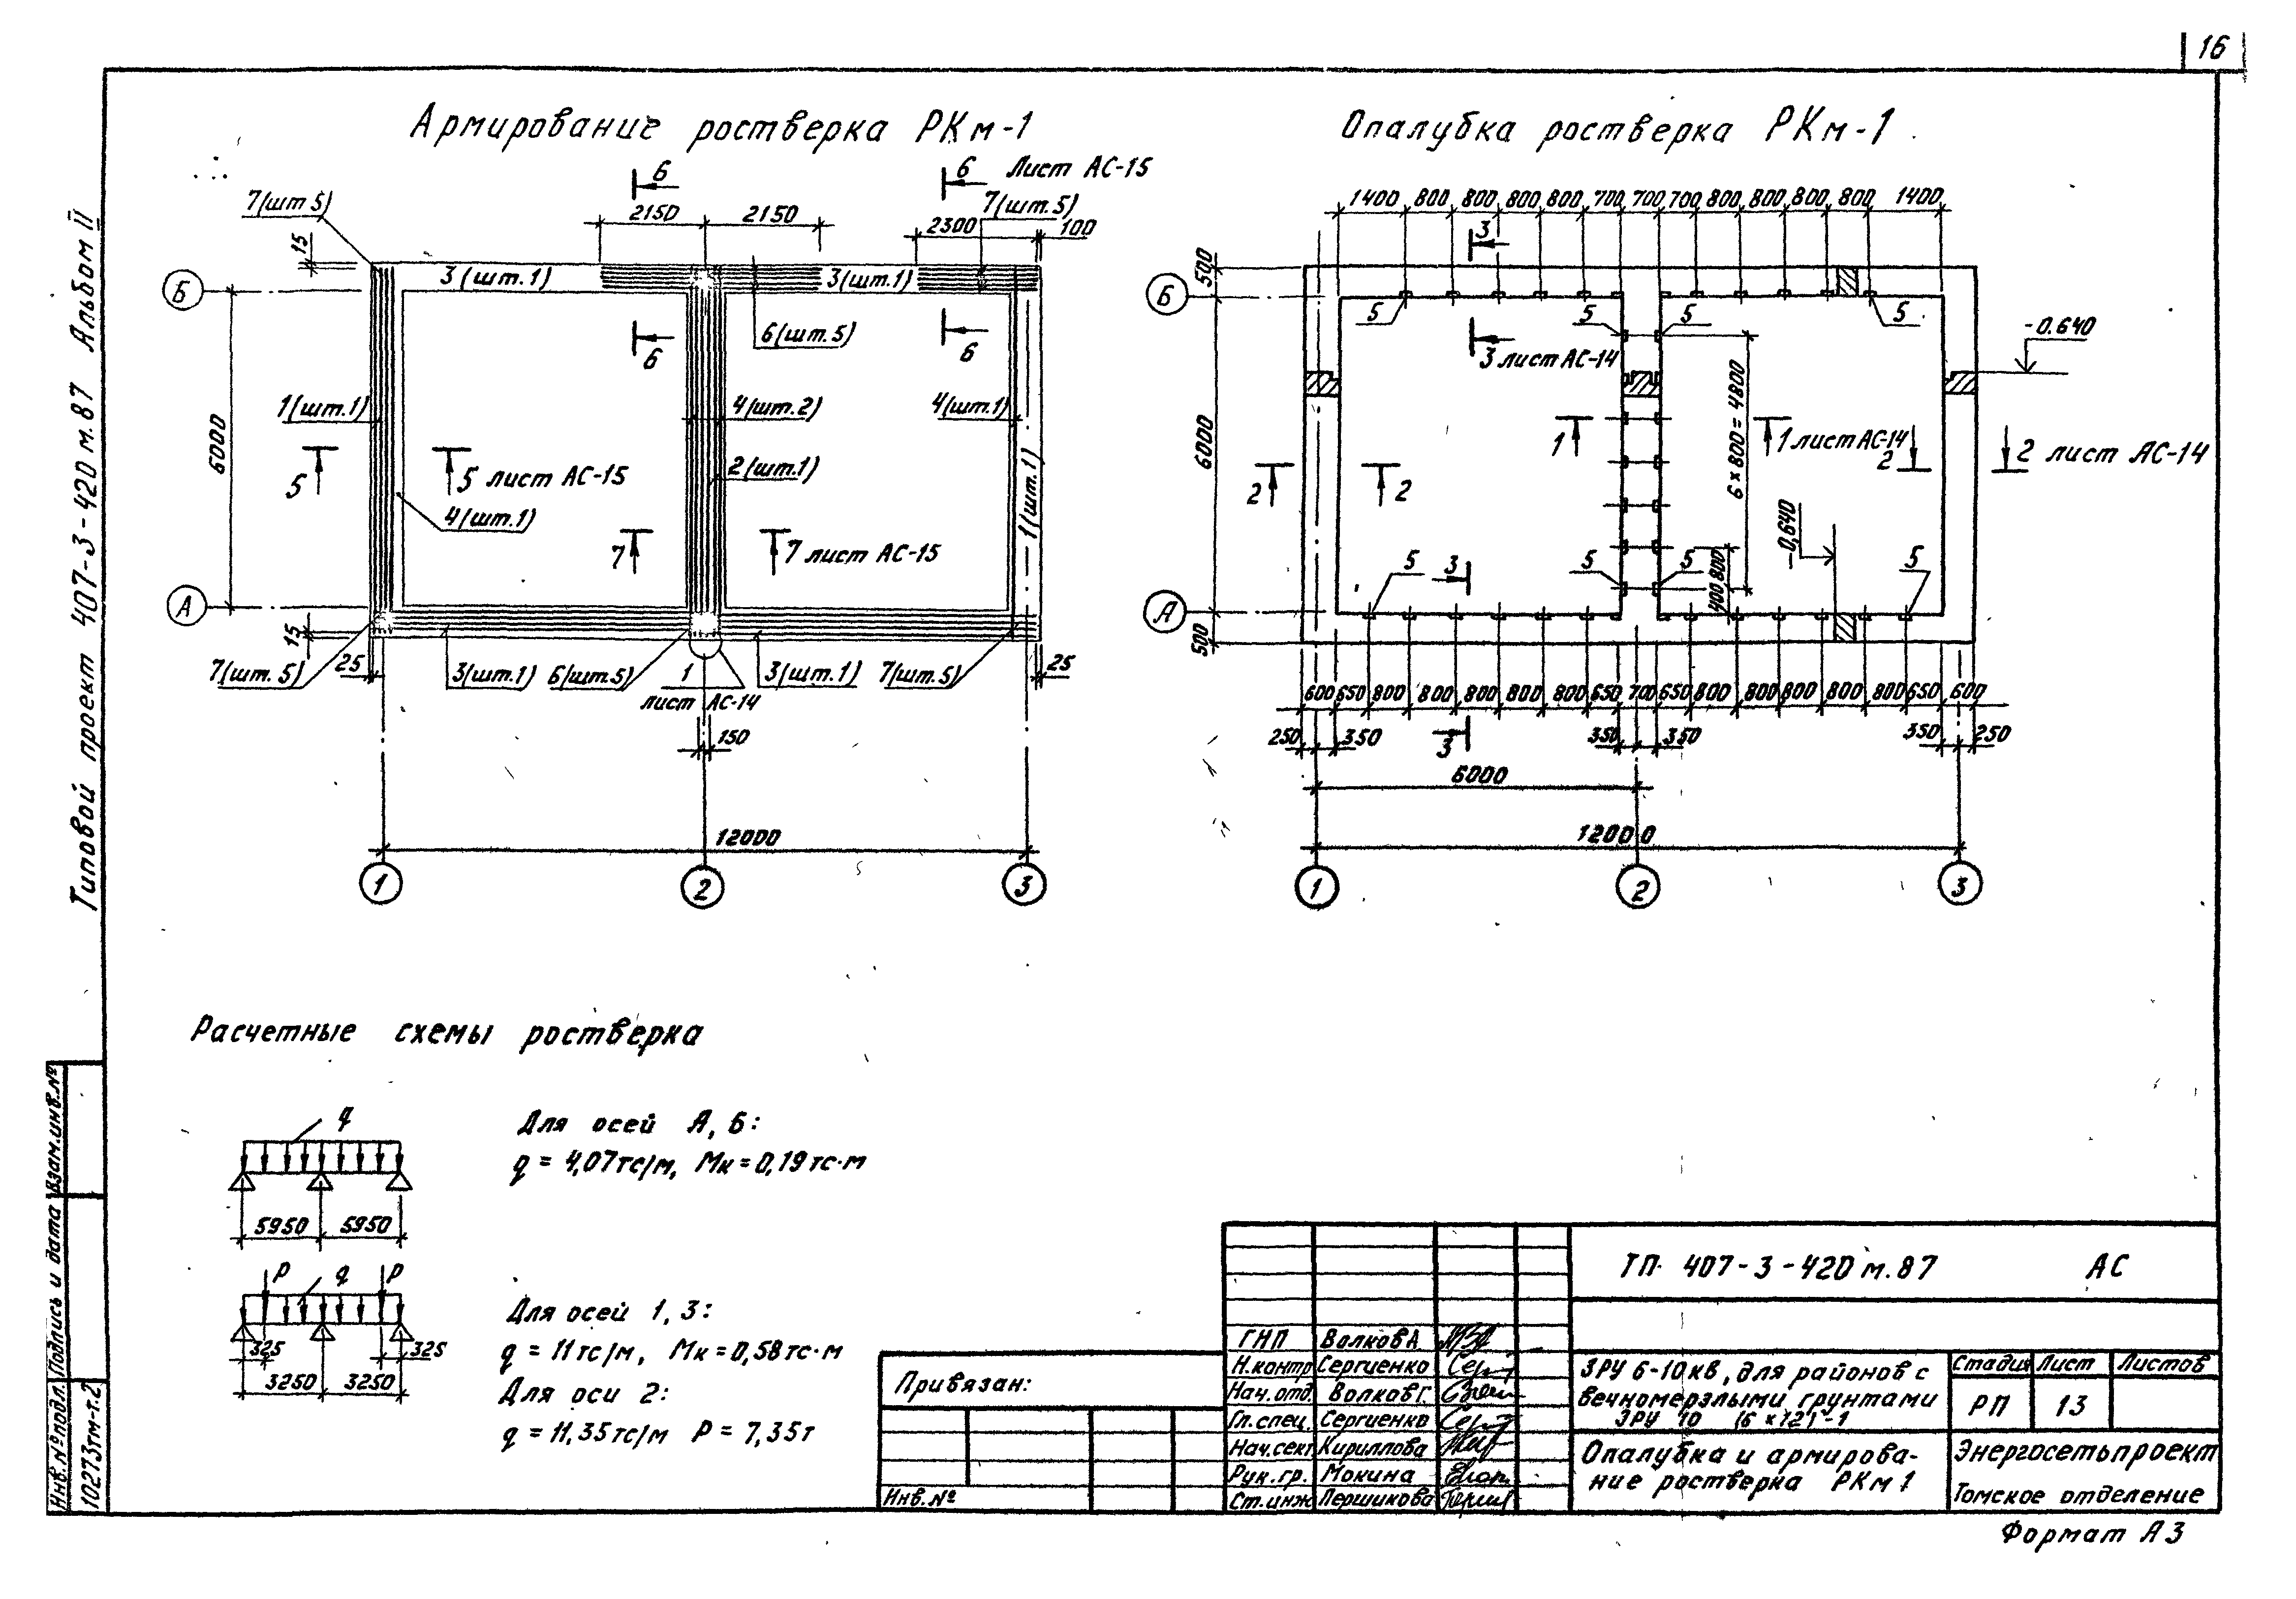 16
Типовой проект 407-3-420 м.87 Альбом II
Армирование ростверка РКм-1
6
6 Лист АС-15
7(шт 5)
2150
2150
7(шт.5)
2300
100
15
Б
3(шт.1)
3(шт.1)
6(шт.5)
6
6
1(шт.1)
4(шт.2)
4(шт.1)
6000
5
5 лист АС-15
2(шт.1)
1(шт.1)
4(шт.1)
7
7 лист АС-15
А
15
7(шт.5)
25
3(шт.1)
6(шт.5)
1
лист АС-14
3(шт.1)
7(шт.5)
25
150
12000
1
2
3
Опалубка ростверка РКм-1
1400 800 800 800 800 700 700 700 800 800 800 800 1400
3
500
Б
5
5
5
5
-0.640
3 лист АС-14
6×800=4800
6000
1
1 лист АС-14
2
2 лист АС-14
2
2
-0,640
5
3
5
5
5
400 800
А
500
600 650 800 800 800 800 800 650 700 650 800 800 800 800 800 650 600
250 350
3
350 350
350 250
6000
12000
1
2
3
Расчетные схемы ростверка
q
Для осей А, Б:
q = 4,07тс/м, Мк=0,19тс·м
5950 5950
P q P
Для осей 1, 3:
325 325
q = 11тс/м, Мк=0,58тс·м
3250 3250
Для оси 2:
q = 11,35тс/м P = 7,35т
Взам.инв.№
Подпись и дата
Инв.№подл.
10273тм-т.2
Привязан:
Инв.№
ТП 407-3-420 м.87 АС
ГНП Волков А
Н.контр Сергиенко
Нач.отд. Волков Г.
Гл.спец. Сергиенко
Нач.сект Кириллова
Рук.гр. Мокина
Ст.инж Першикова
ЗРУ 6-10кв, для районов с
вечномерзлыми грунтами
ЗРУ 10 (6×12)-1
Стадия Лист Листов
РП 13
Опалубка и армирова-
ние ростверка РКм 1
Энергосетьпроект
Томское отделение
Формат А3